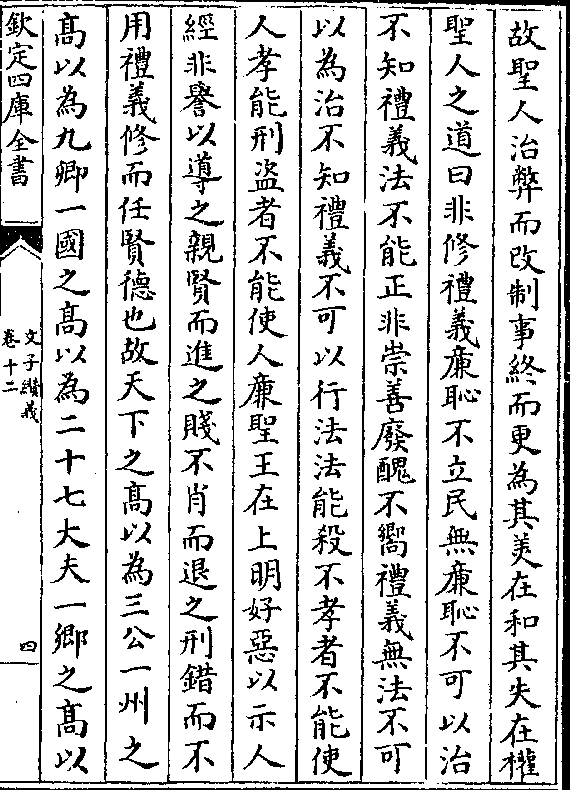 故聖人治弊而改制事終而更為其美在和其失在權
聖人之道曰非修禮義廉恥不立民無廉恥不可以治
不知禮義法不能正非崇善廢醜不嚮禮義無法不可
以為治不知禮義不可以行法法能殺不孝者不能使
人孝能刑盜者不能使人廉聖王在上明好惡以示人
經非譽以導之親賢而進之賤不肖而退之刑錯而不
用禮義修而任賢德也故天下之高以為三公一州之
高以為九卿一國之高以為二十七大夫一鄉之高以
欽定四庫全書
文子纘義
卷十二
四